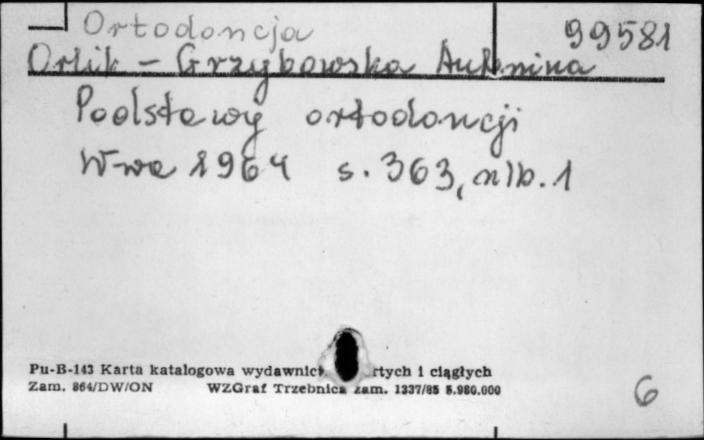 Ortodoncja 99581
Orlik-Grzybowska Antonina
Podstawy ortodoncji
W-wa 1964 s. 363, nlb. 1
Pu-B-143 Karta katalogowa wydawnict rtych i ciągłych
Zam. 864/DW/ON WZGraf Trzebnica zam. 1337/85 5.980.000
6